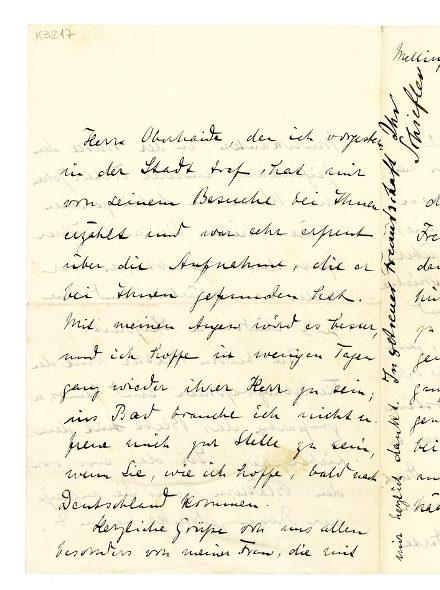 K3217
Herr Oberheide, den ich vorgestern
in der Stadt traf, hat mir
von seinem Besuche bei Ihnen
erzählt und war sehr erfreut
über die Aufnahme, die er
bei Ihnen gefunden hat.
Mit meinen Augen wird es besser,
und ich hoffe in wenigen Tagen
ganz wieder ihrer Herr zu sein;
ins Bad brauche ich nicht u.
freue mich zur Stelle zu sein,
wenn Sie, wie ich hoffe, bald nach
Deutschland kommen.
Herzliche Grüße von uns allen
besonders von meiner Frau, die mit
mir herzlich dankt. In getreuer Freundschaft Ihr
Schiefler